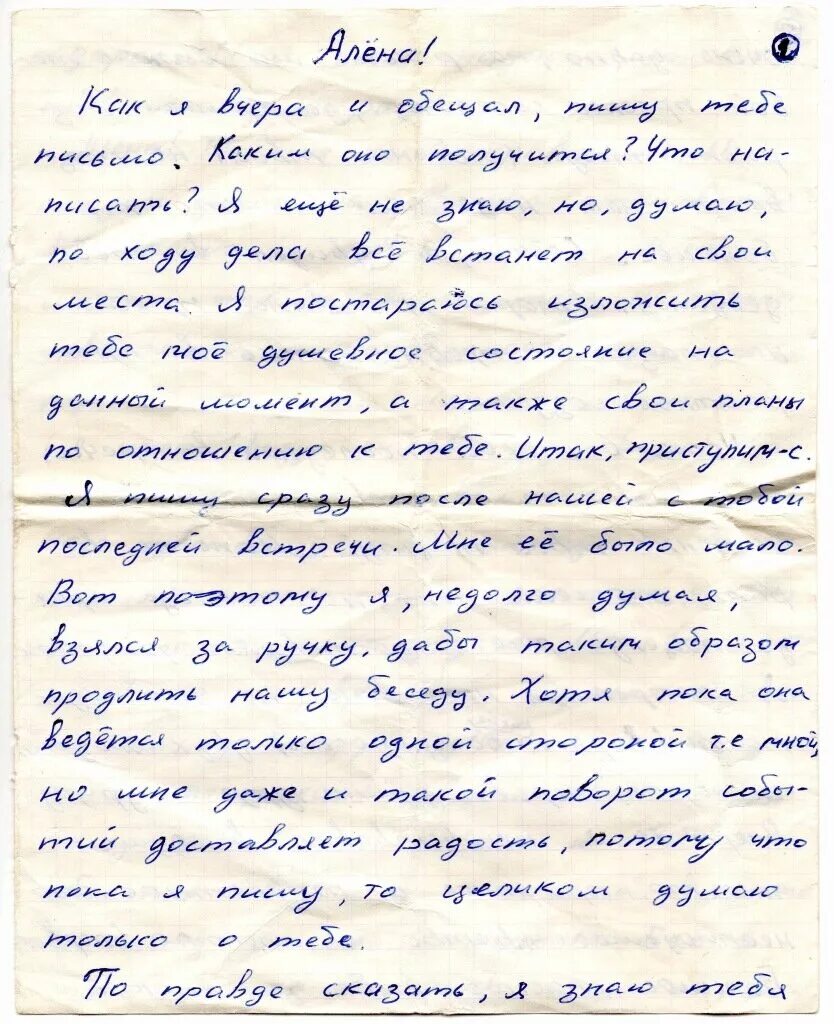 1
Алёна!
Как я вчера и обещал, пишу тебе
письмо. Каким оно получится? Что на-
писать? Я ещё не знаю, но, думаю,
по ходу дела всё встанет на свои
места. Я постараюсь изложить
тебе моё душевное состояние на
данный момент, а также свои планы
по отношению к тебе. Итак, приступим-с.
Я пишу сразу после нашей с тобой
последней встречи. Мне её было мало.
Вот поэтому я, недолго думая,
взялся за ручку, дабы таким образом
продлить нашу беседу. Хотя пока она
ведётся только одной стороной т.е мной,
но мне даже и такой поворот собы-
тий доставляет радость, потому что
пока я пишу, то целиком думаю
только о тебе.
По правде сказать, я знаю тебя